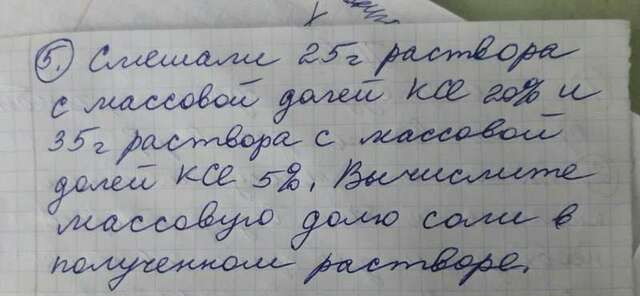 5. Смешали 25г раствора
с массовой долей KCl 20% и
35г раствора с массовой
долей KCl 5%. Вычислите
массовую долю соли в
полученном растворе.